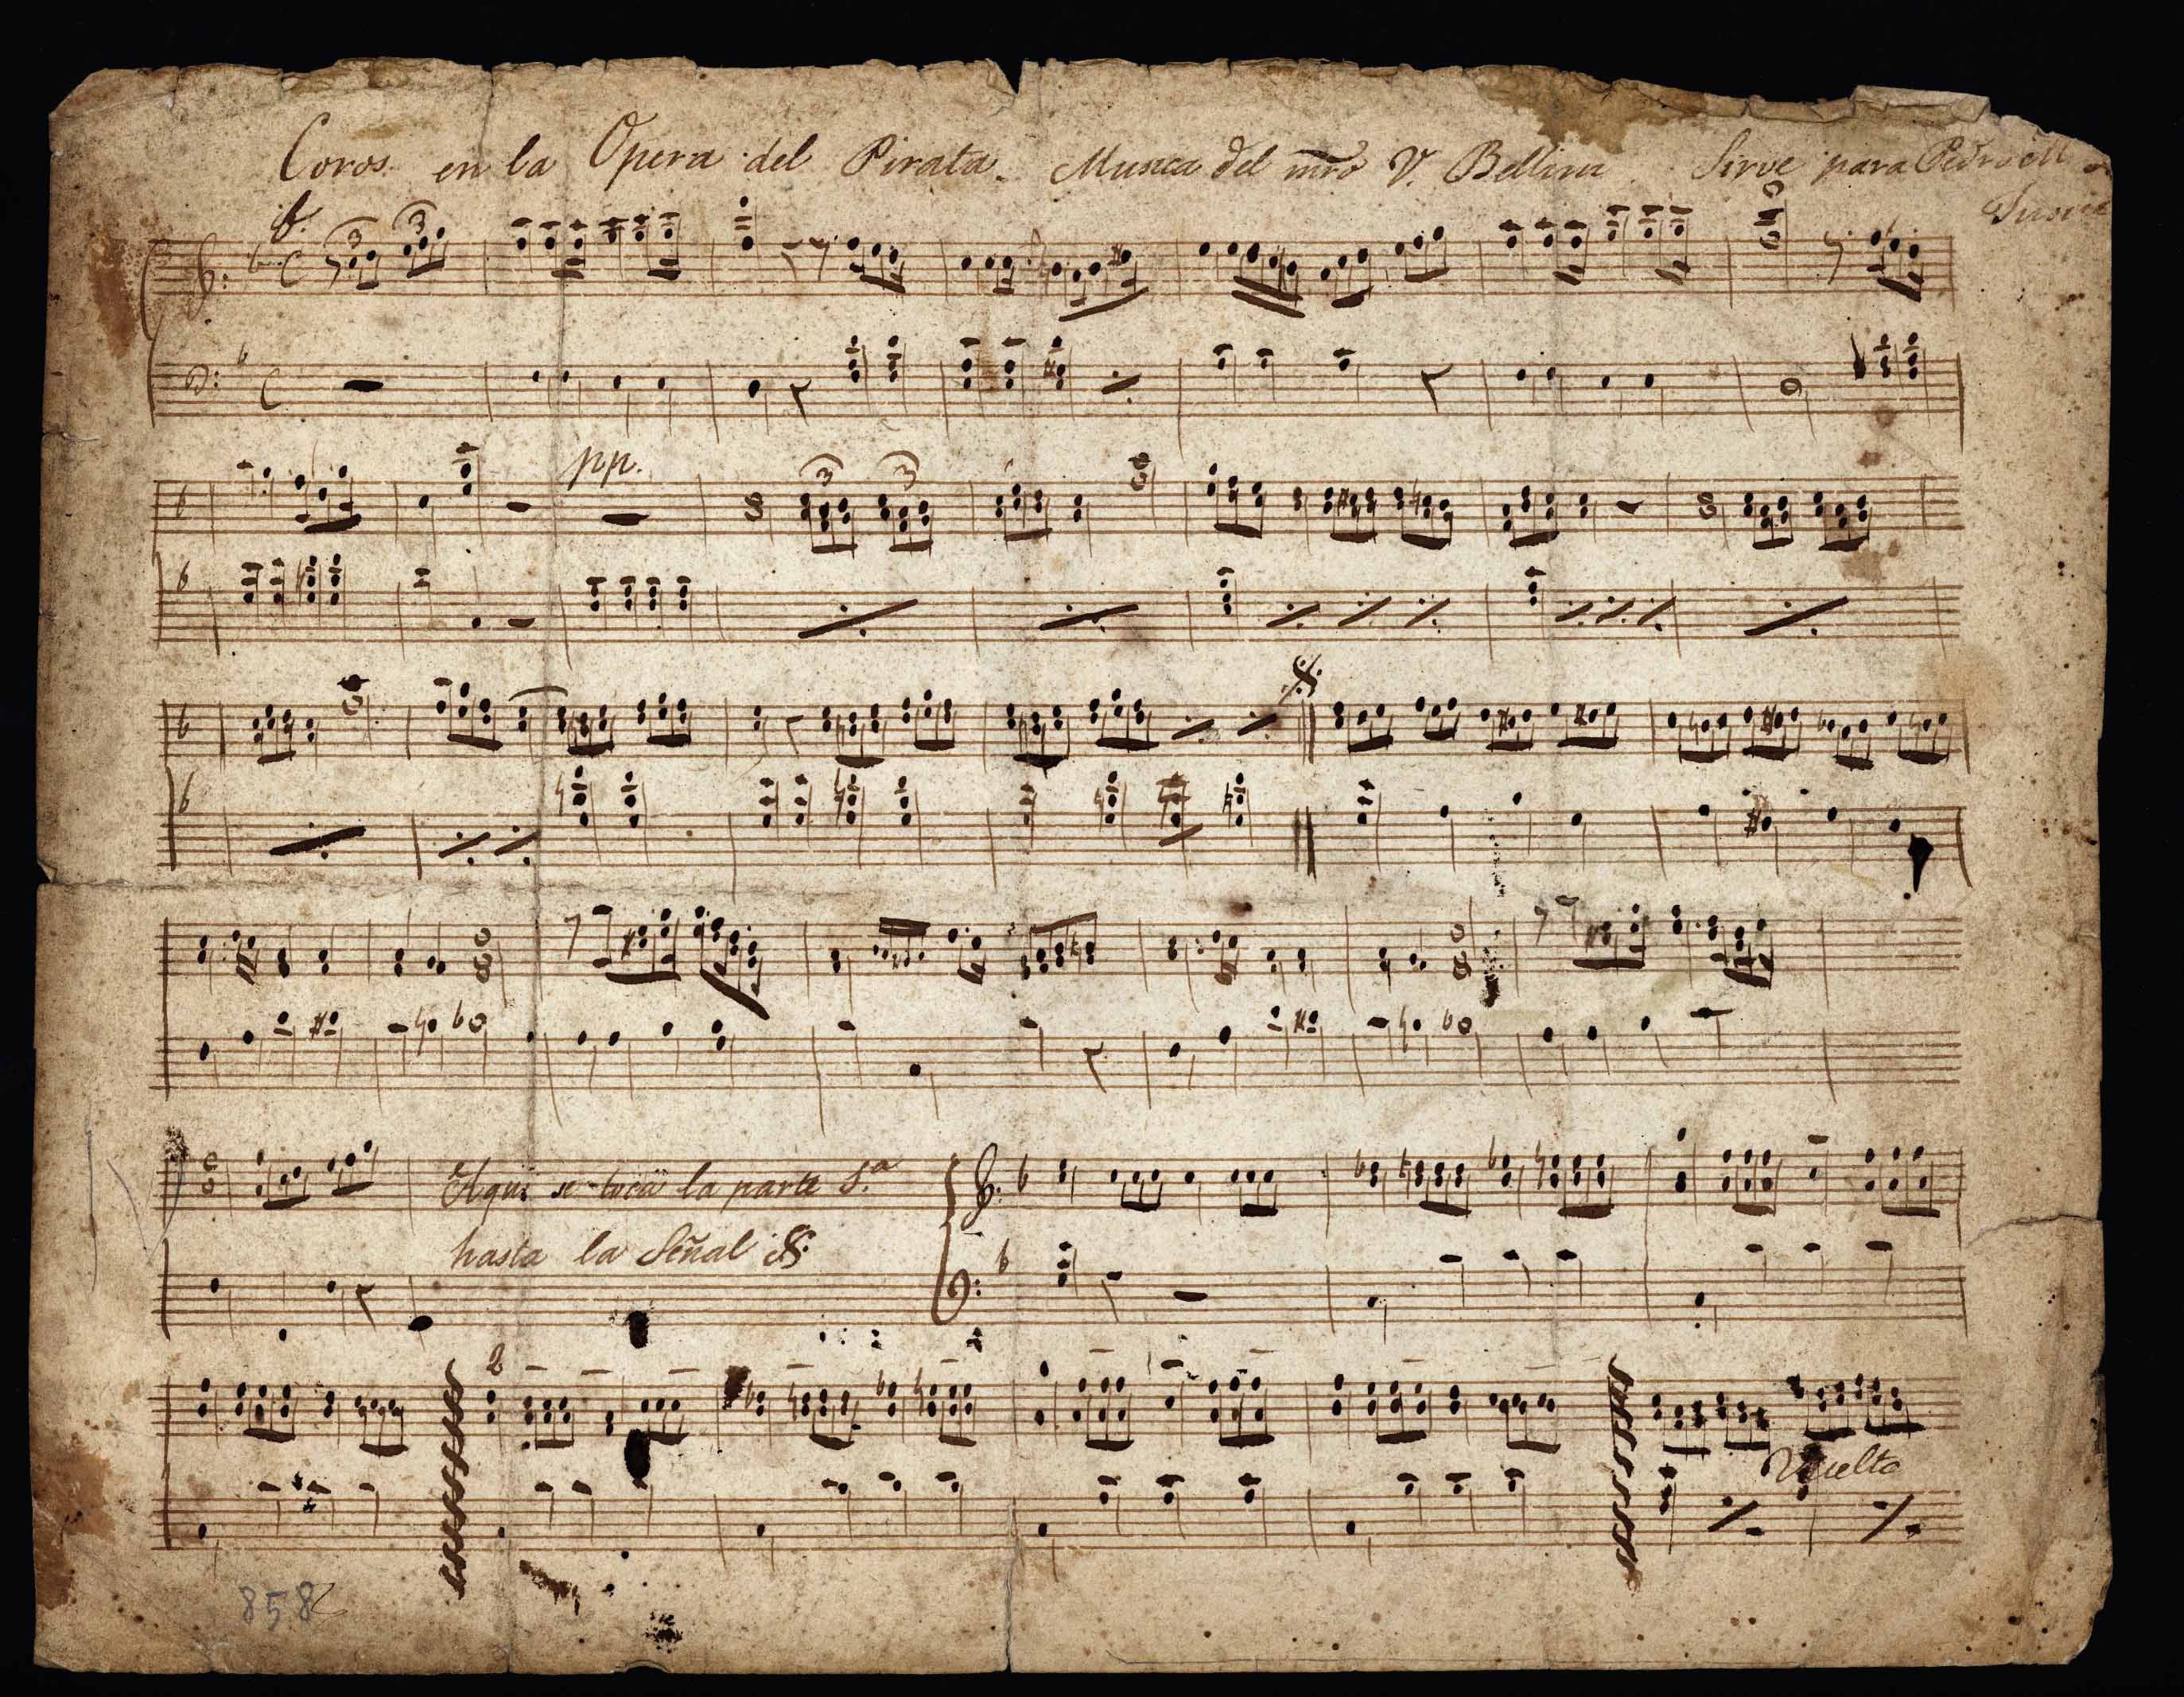 Coros. en la Opera del Pirata. Musica del mro V. Bellini Sirve para Pedro
f.
3 3
pp.
3 3
Aqui se toca la parte 1.ª
hasta la Señal
2
Vuelta
858